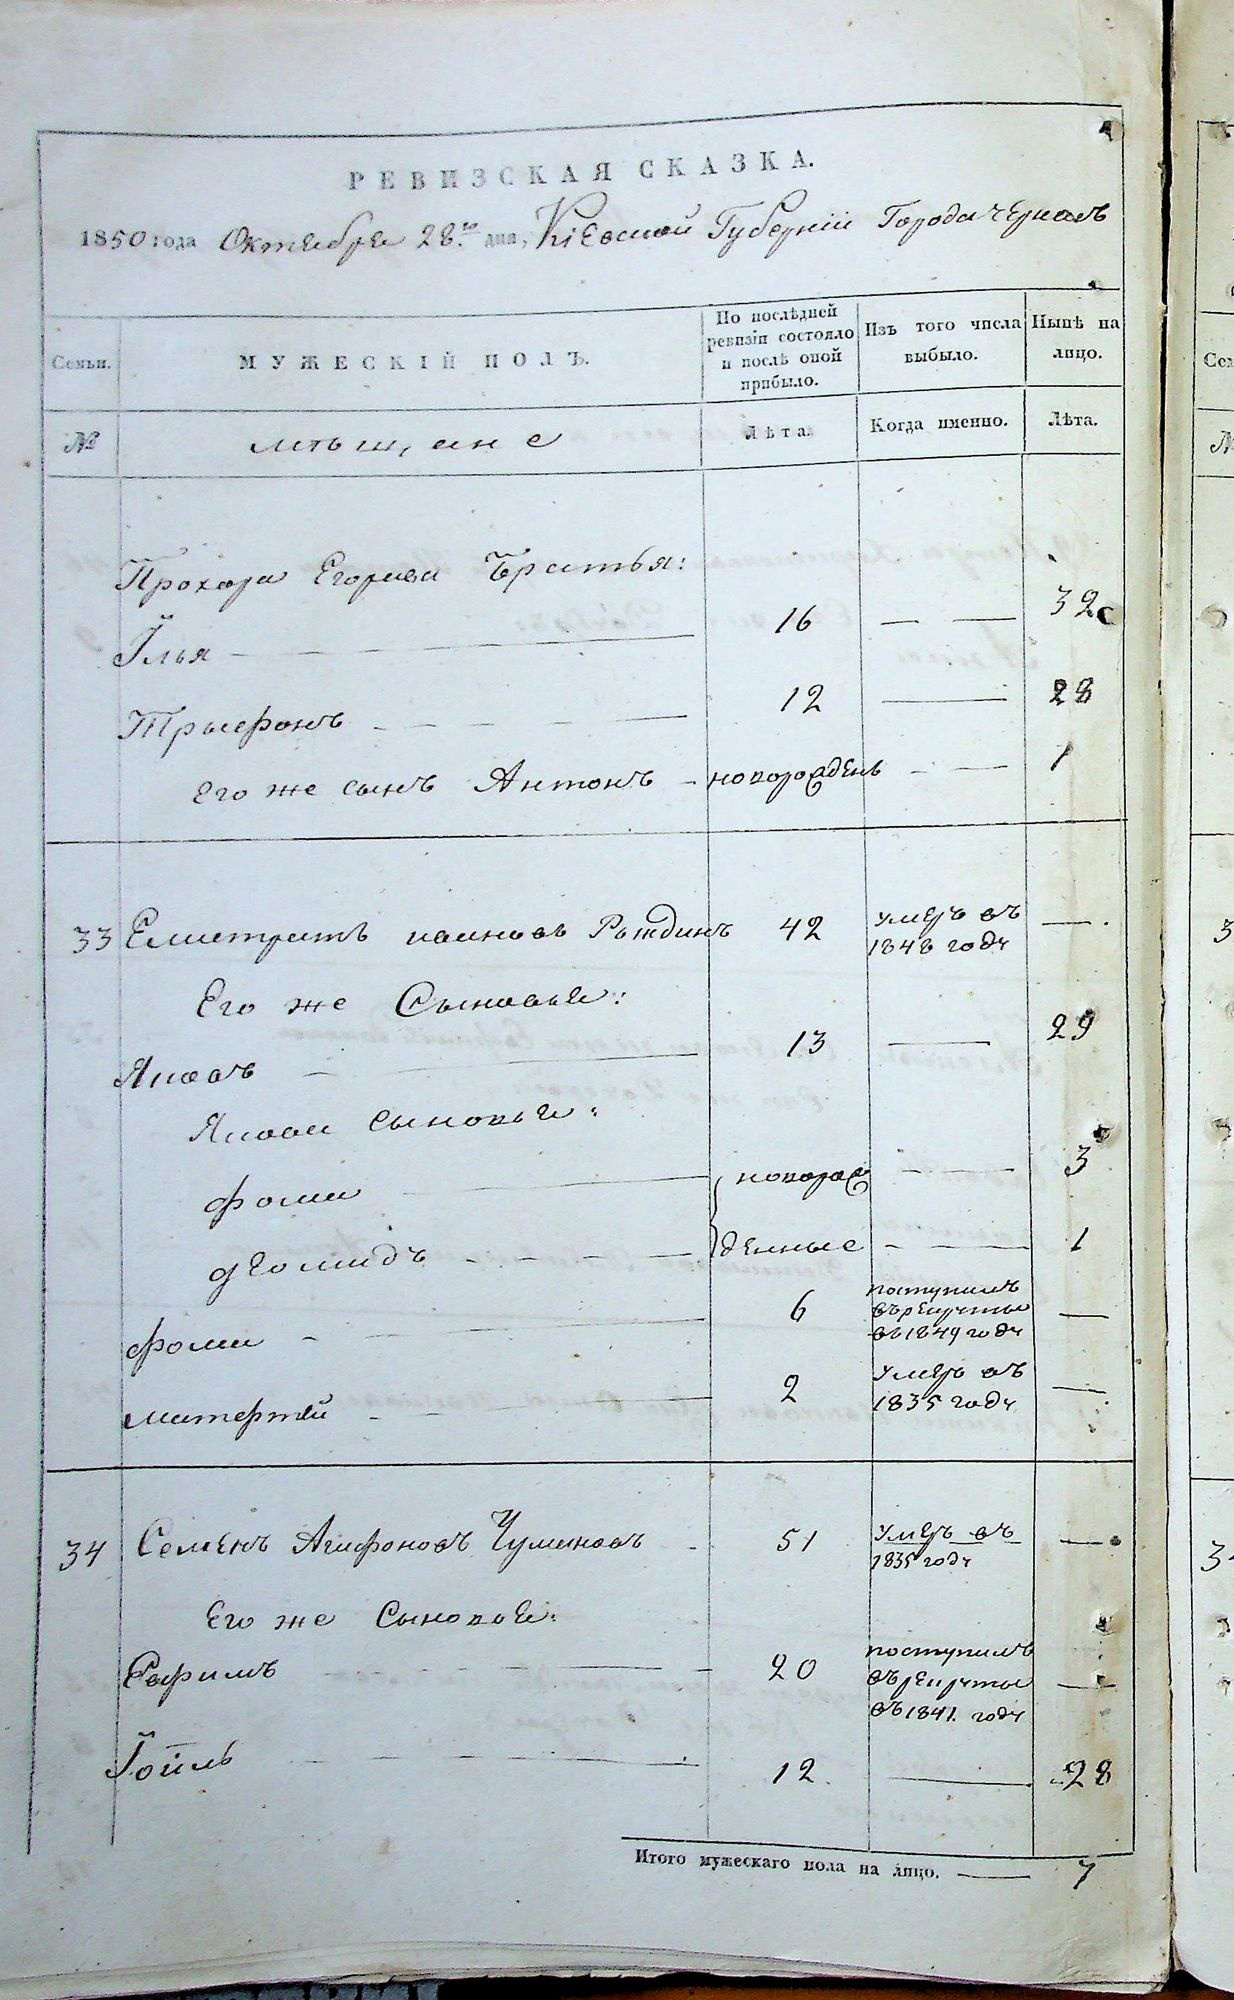 РЕВИЗСКАЯ СКАЗКА.
1850 года Октября 28го дня, Кіевской Губерніи Города Черкасъ
Семьи.
МУЖЕСКІЙ ПОЛЪ.
По послѣдней
ревизіи состояло
и послѣ оной
прибыло.
Изъ того числа
выбыло.
Нынѣ на
лицо.
№
мѣщане
Лѣта.
Когда именно.
Лѣта.
Прохора Егорова Братья:
Илья 16 32
Трыфонъ 12 28
Его же сынъ Антонъ новорожденъ 1
33 Елистратъ Ивановъ 42 умеръ въ
1848 году
Его же Сыновья:
Яковъ 13 29
Якова сыновья:
Фома новорож 3
Діомидъ денные 1
Фома 6 поступилъ
въ рекруты
въ 1849 году
Матерѣй 2 умеръ въ
1835 году
34 Семенъ Агафоновъ Чумаковъ 51 умеръ въ
1835 году
Его же Сыновья:
Ефимъ 20 поступилъ
въ рекруты
въ 1841 году
Іоиль 12 28
Итого мужескаго пола на лицо. 7